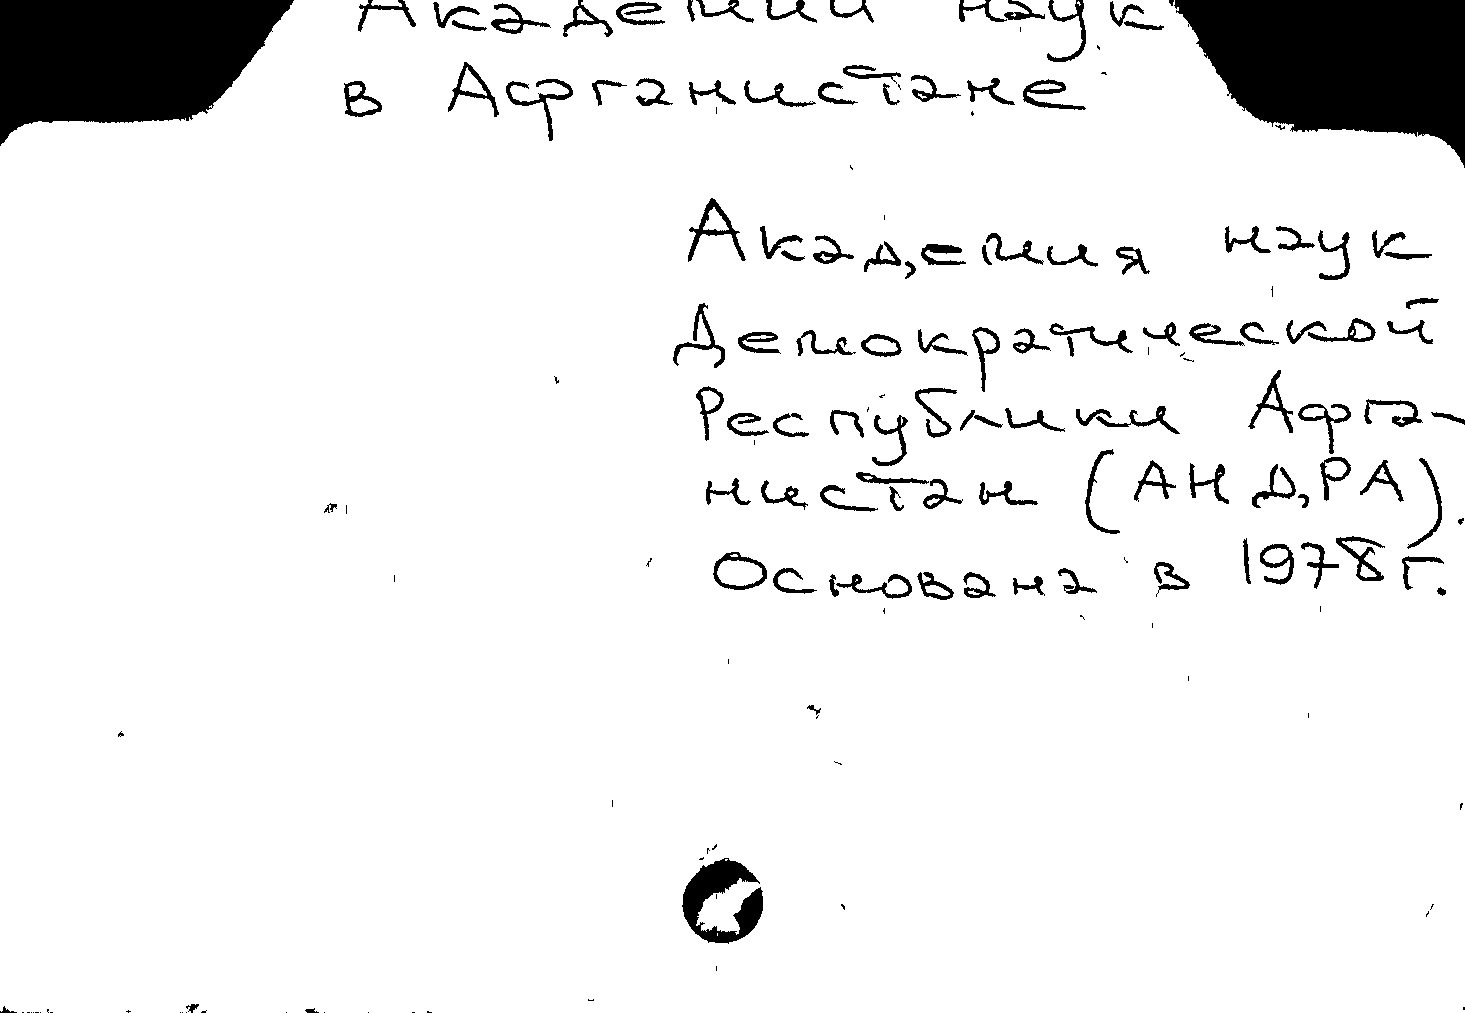 Академии наук
в Афганистане
Академия наук
Демократической
Республики Афга-
нистан (АНДРА).
Основана в 1978г.